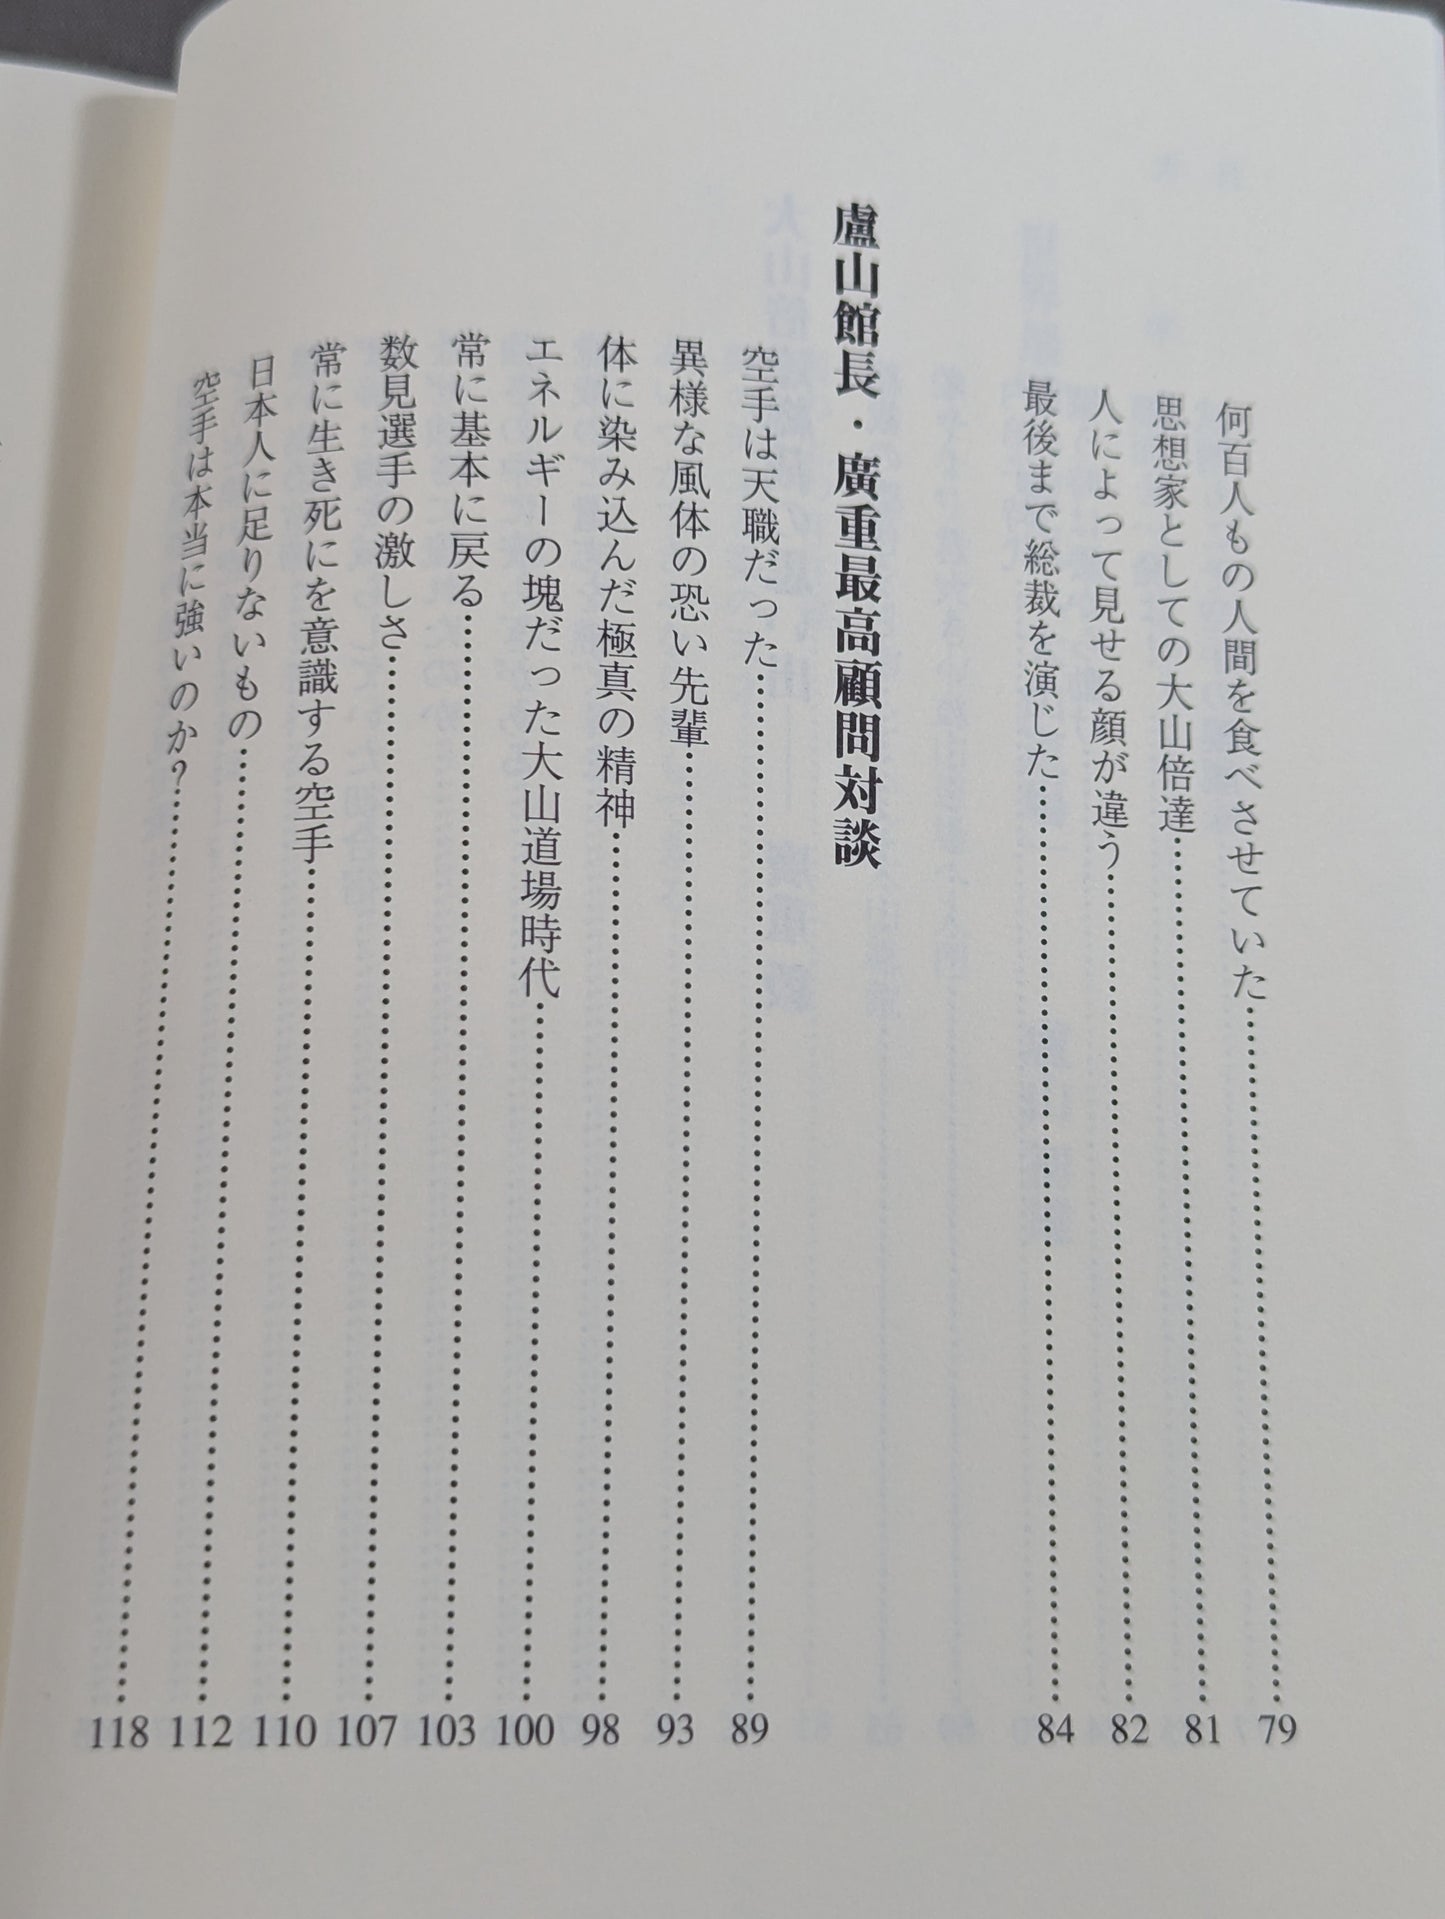 何百人もの人間を食べさせていた……79
思想家としての大山倍達……81
人によって見せる顔が違う……82
最後まで総裁を演じた……84
盧山館長・廣重最高顧問対談
空手は天職だった……89
異様な風体の恐い先輩……93
体に染み込んだ極真の精神……98
エネルギーの塊だった大山道場時代……100
常に基本に戻る……103
数見選手の激しさ……107
常に生き死にを意識する空手……110
日本人に足りないもの……112
空手は本当に強いのか?……118